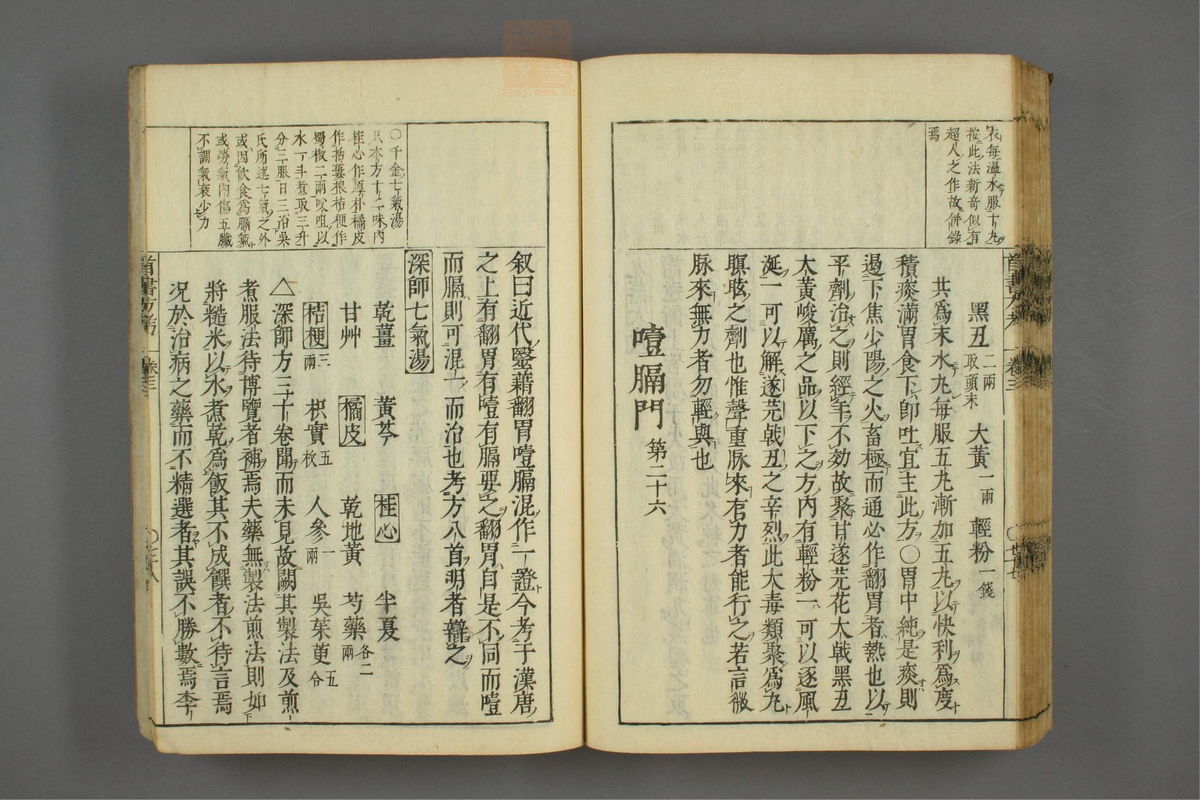 衣每溫水服十丸
按此法新奇似有
超人之作故併錄
焉
黑丑二兩取頭末 大黃一兩 輕粉一錢
共為末水丸每服五丸漸加五丸以快利為度
積痰滿胃食下即吐宜主此方〇胃中純是痰則
過下焦少陽之火畜極而通必作翻胃者熱也以
平劑治之則經年不効故聚甘遂芫花大戟黑丑
大黃峻厲之品以下之方內有輕粉一可以逐風
涎一可以解遂芫戟丑之辛烈此大毒類聚為丸
瞑眩之劑也惟聲重脉來有力者能行之若言微
脉來無力者勿輕與也
噎膈門 第二十六
〇千金七氣湯
只本方十二味內
桂心作厚朴橘皮
作栝蔞根桔梗作
蜀椒二兩㕮咀以
水一斗煮取三升
分三服日三治吳
氏所述七氣之外
或因飲食為膈氣
或勞氣內傷五臟
不調氣衰少力
叙曰近代毉藉翻胃噎膈混作一證今考于漢唐
之上有翻胃有噎有膈要之翻胃自是不同而噎
而膈則可混一而治也考方八首明者辯之
深師七氣湯
乾薑 黃芩 桂心 半夏
甘艸 橘皮 乾地黃 芍藥各二兩
桔梗三兩 枳實五枚 人參一兩 吳茱萸五合
△深師方三十卷聞而未見故闕其製法及煎
煮服法待博覽者補焉夫藥無製法煎法則如
將糙米以水煮乾為飯其不成饌者不待言焉
况於治病之藥而不精選者其誤不勝數焉李
卷三
卷三